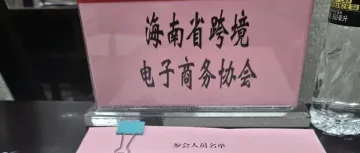 海南省跨境
电子商务协会
参会人员名单